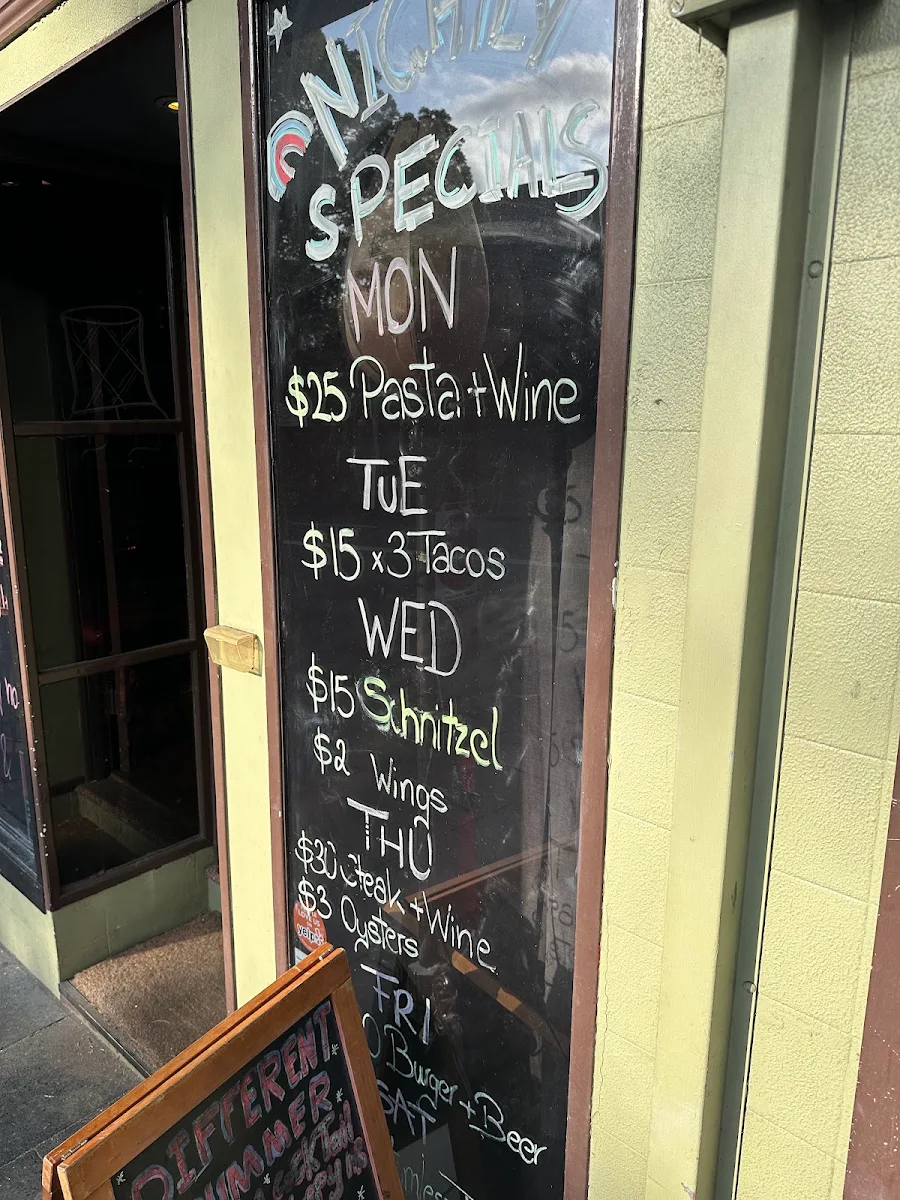 NIGHTLY
SPECIALS
MON
$25 Pasta + Wine
TUE
$15 x3 Tacos
WED
$15 Schnitzel
$2 Wings
THU
$30 Steak + Wine
$3 Oysters
yelp
FRI
Burger + Beer
SAT
DIFFERENT
no